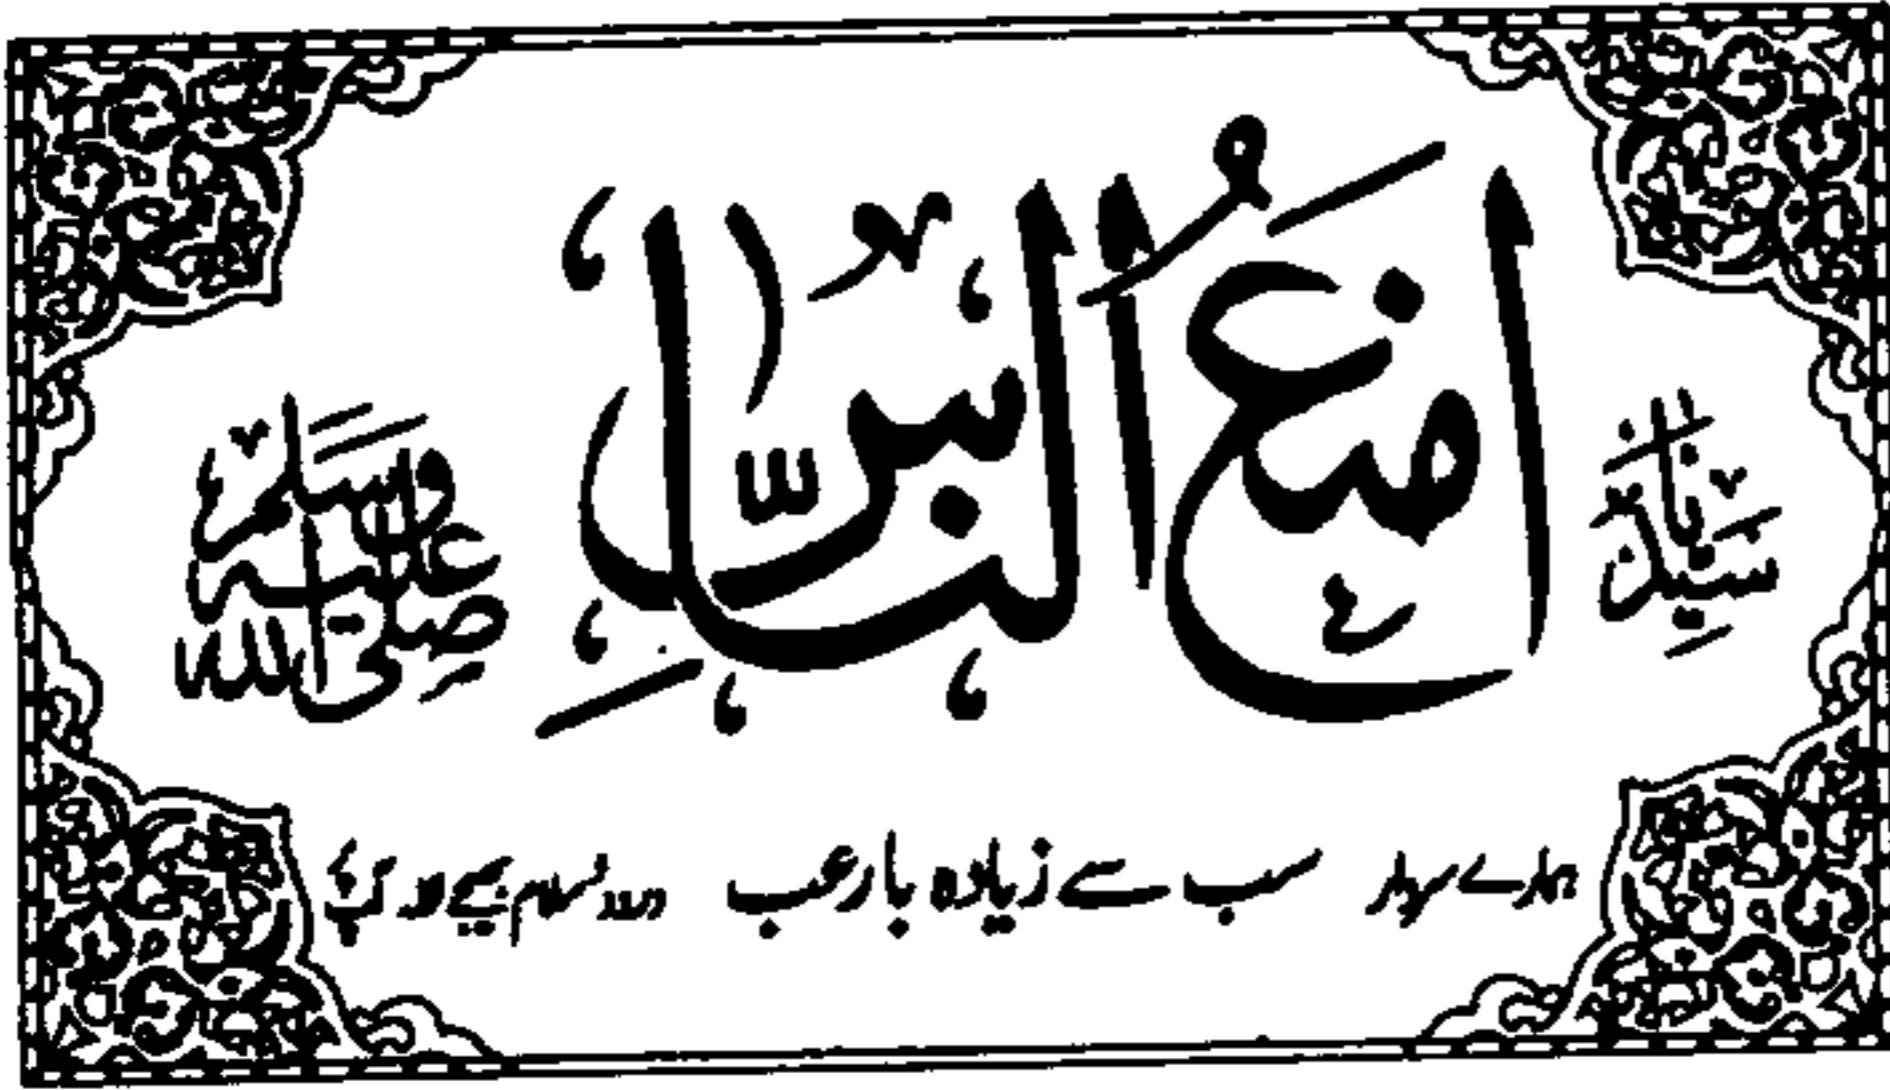 سَيِّدُنَا اَمْنَعُ النَّاسِ صَلَّى اللّٰه عَلَيْهِ وَسَلَّم
ہمارے سردار سب سے زیادہ بارعب درود سلام بھیجے اللہ